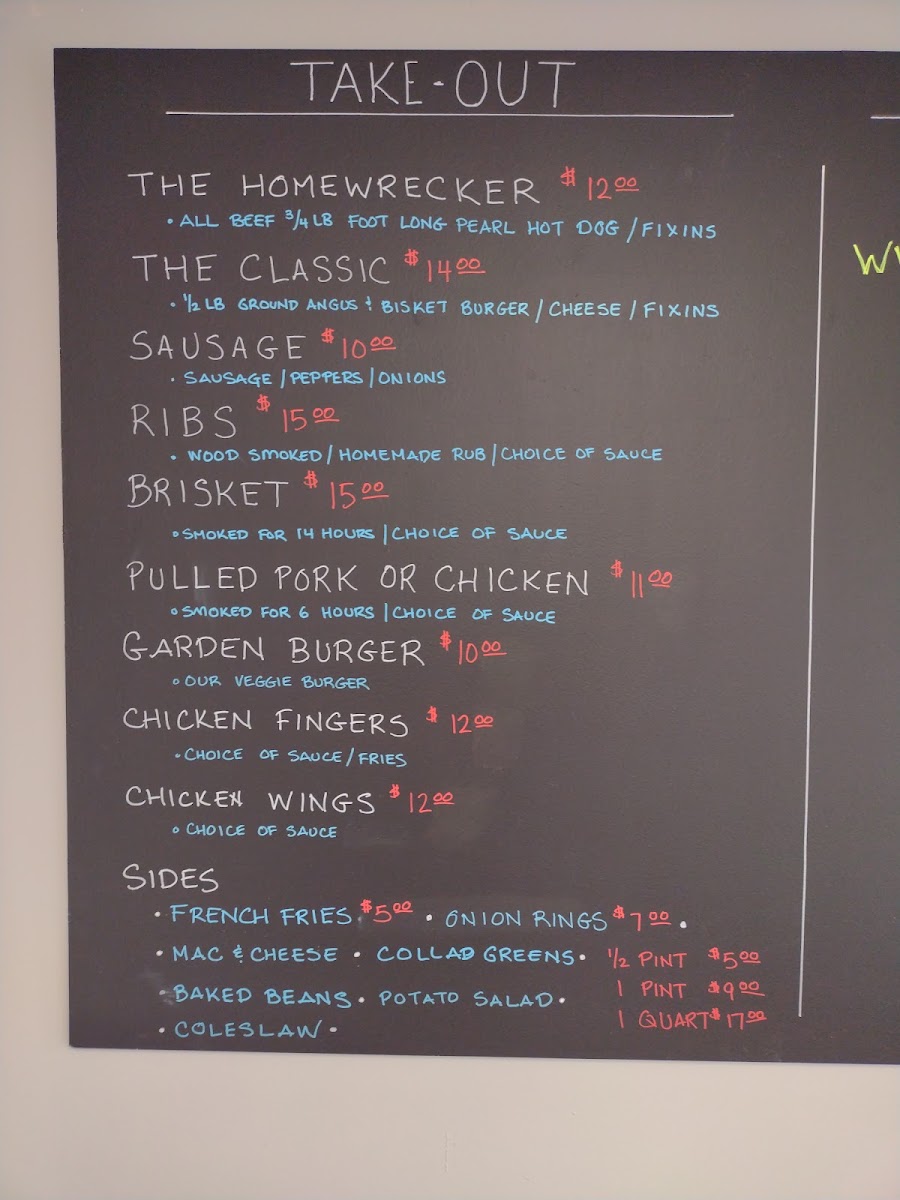 TAKE-OUT
THE HOMEWRECKER $12.00
• ALL BEEF 3/4 LB FOOT LONG PEARL HOT DOG / FIXINS
THE CLASSIC $14.00
• 1/2 LB GROUND ANGUS & BISKET BURGER / CHEESE / FIXINS
SAUSAGE $10.00
• SAUSAGE / PEPPERS / ONIONS
RIBS $15.00
• WOOD SMOKED / HOMEMADE RUB / CHOICE OF SAUCE
BRISKET $15.00
• SMOKED FOR 14 HOURS | CHOICE OF SAUCE
PULLED PORK OR CHICKEN $11.00
• SMOKED FOR 6 HOURS | CHOICE OF SAUCE
GARDEN BURGER $10.00
• OUR VEGGIE BURGER
CHICKEN FINGERS $12.00
• CHOICE OF SAUCE / FRIES
CHICKEN WINGS $12.00
• CHOICE OF SAUCE
SIDES
• FRENCH FRIES $5.00 • ONION RINGS $7.00 •
• MAC & CHEESE • COLLAD GREENS • 1/2 PINT $5.00
• BAKED BEANS • POTATO SALAD • 1 PINT $9.00
• COLESLAW • 1 QUART $17.00